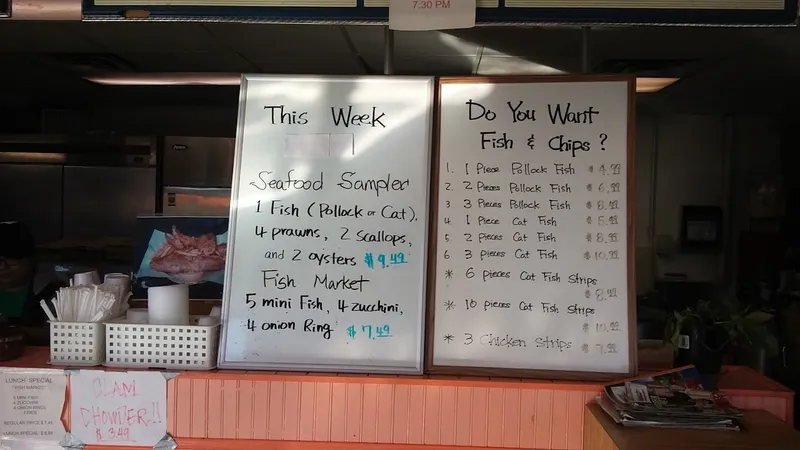 7:30 PM
This Week
Seafood Sampler
1 Fish (Pollock or Cat),
4 prawns, 2 Scallops,
and 2 oysters $9.49
Fish Market
5 mini Fish, 4 zucchini,
4 onion Ring $7.49
Do You Want
Fish & Chips?
1. 1 Piece Pollock Fish $4.99
2. 2 Pieces Pollock Fish $6.99
3 3 Pieces Pollock Fish $8.49
4. 1 Piece Cat Fish $5.49
5. 2 pieces Cat Fish $8.99
6 3 pieces Cat Fish $10.99
* 6 pieces Cat Fish Strips
$8.49
* 10 pieces Cat Fish Strips
$10.99
* 3 Chicken Strips $7.99
LUNCH SPECIAL
FISH MARKET
5 MINI FISH
4 ZUCCHINI
4 ONION RINGS
FRIES
REGULAR PRICE $7.49
LUNCH SPECIAL
CLAM
CHOWDER!!
$3.49